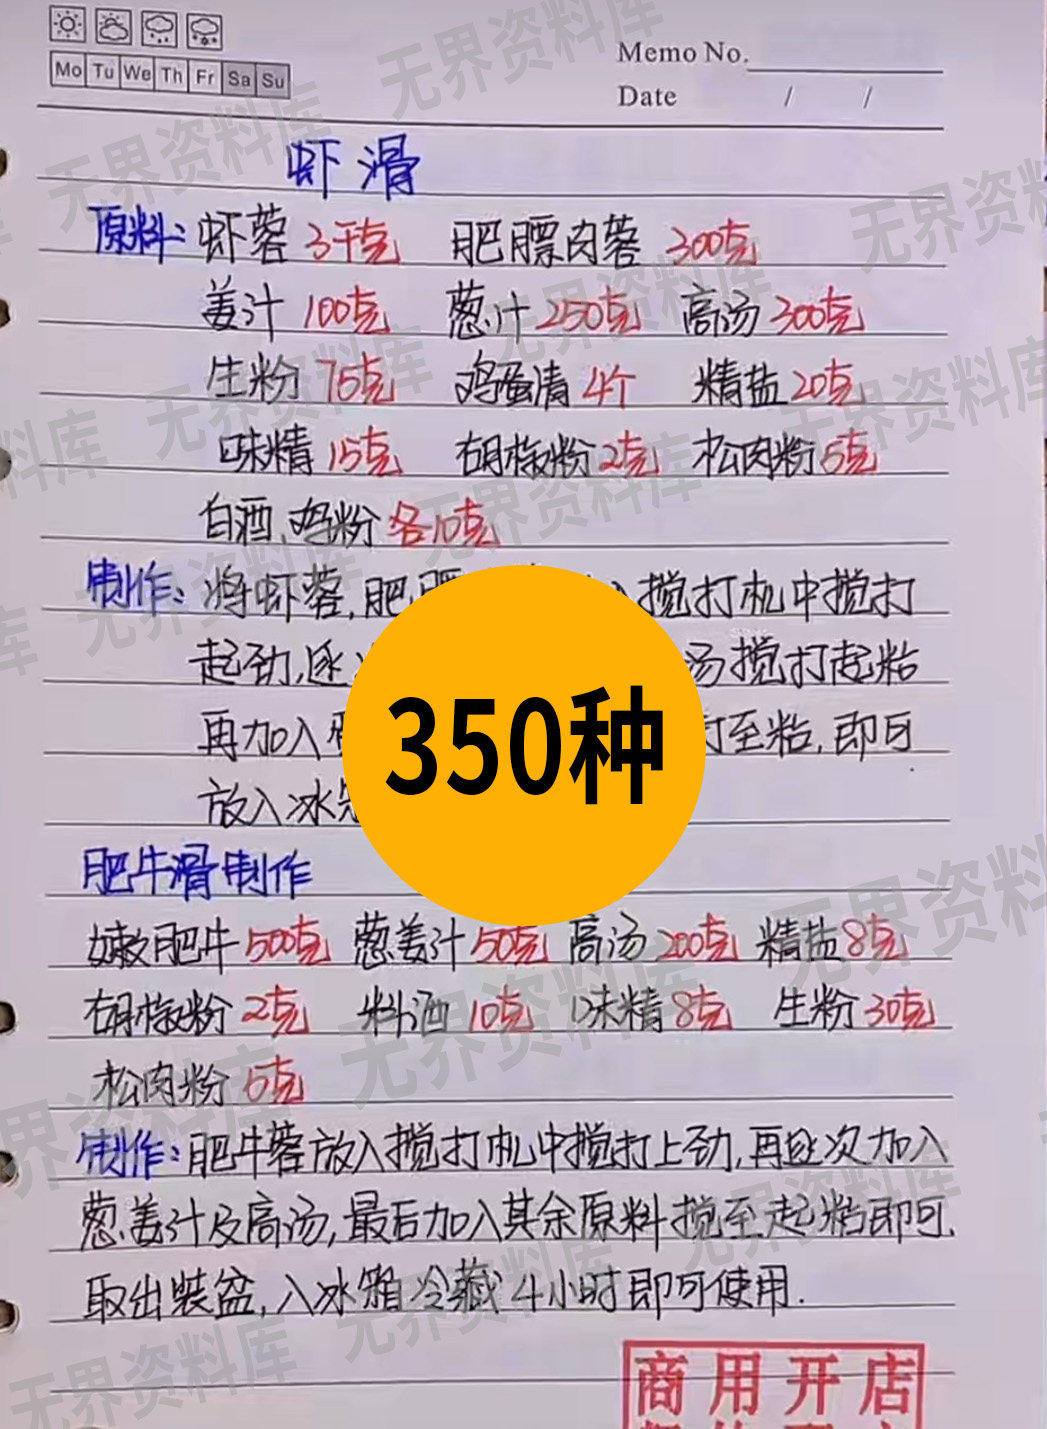 Memo No.
Mo Tu We Th Fr Sa Su
Date / /
虾滑
原料：虾蓉 3千克 肥膘肉蓉 300克
姜汁 100克 葱汁 250克 高汤 300克
生粉 75克 鸡蛋清 4个 精盐 20克
味精 15克 胡椒粉 2克 松肉粉 5克
白酒、鸡粉 各10克
制作：将虾蓉,肥膘 入搅打机中搅打
起劲,逐 汤搅打起粘
再加入 打至粘,即可
放入冰
350种
肥牛滑制作
嫩肥牛 500克 葱姜汁 50克 高汤 200克 精盐 8克
胡椒粉 2克 料酒 10克 味精 8克 生粉 30克
松肉粉 5克
制作：肥牛蓉放入搅打机中搅打上劲,再逐次加入
葱姜汁及高汤,最后加入其余原料搅至起粘即可.
取出装盆,入冰箱冷藏4小时即可使用.
商用开店
无界资料库